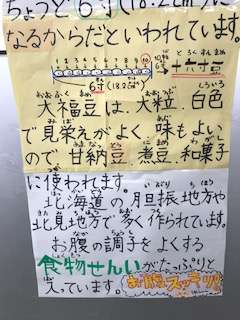 ちょうど6寸(18.2cm)に
なるからだといわれています。
1 2 3 4 5 6 7 8 9 10
6寸(18.2cm)
とろくすんまめ
十六寸豆
おおふくまめ おおつぶ しろいろ
大福豆は、大粒、白色
で見栄えがよく、味もよい
ので、甘納豆、煮豆、和菓子
に使われます。
北海道の胆振地方や
北見地方で多く作られています。
お腹の調子をよくする
食物せんいがたっぷりと
入っています。お腹スッキリ!